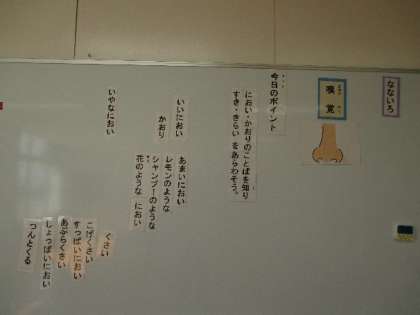 なないろ
嗅覚
今日のポイント
におい・かおりのことばを知り
すき・きらい をあらわそう。
いいにおい
かおり
あまいにおい
レモンのような
シャンプーのような
花のような におい
いやなにおい
くさい
こげくさい
すっぱいにおい
あぶらくさい
しょっぱいにおい
つんとくる